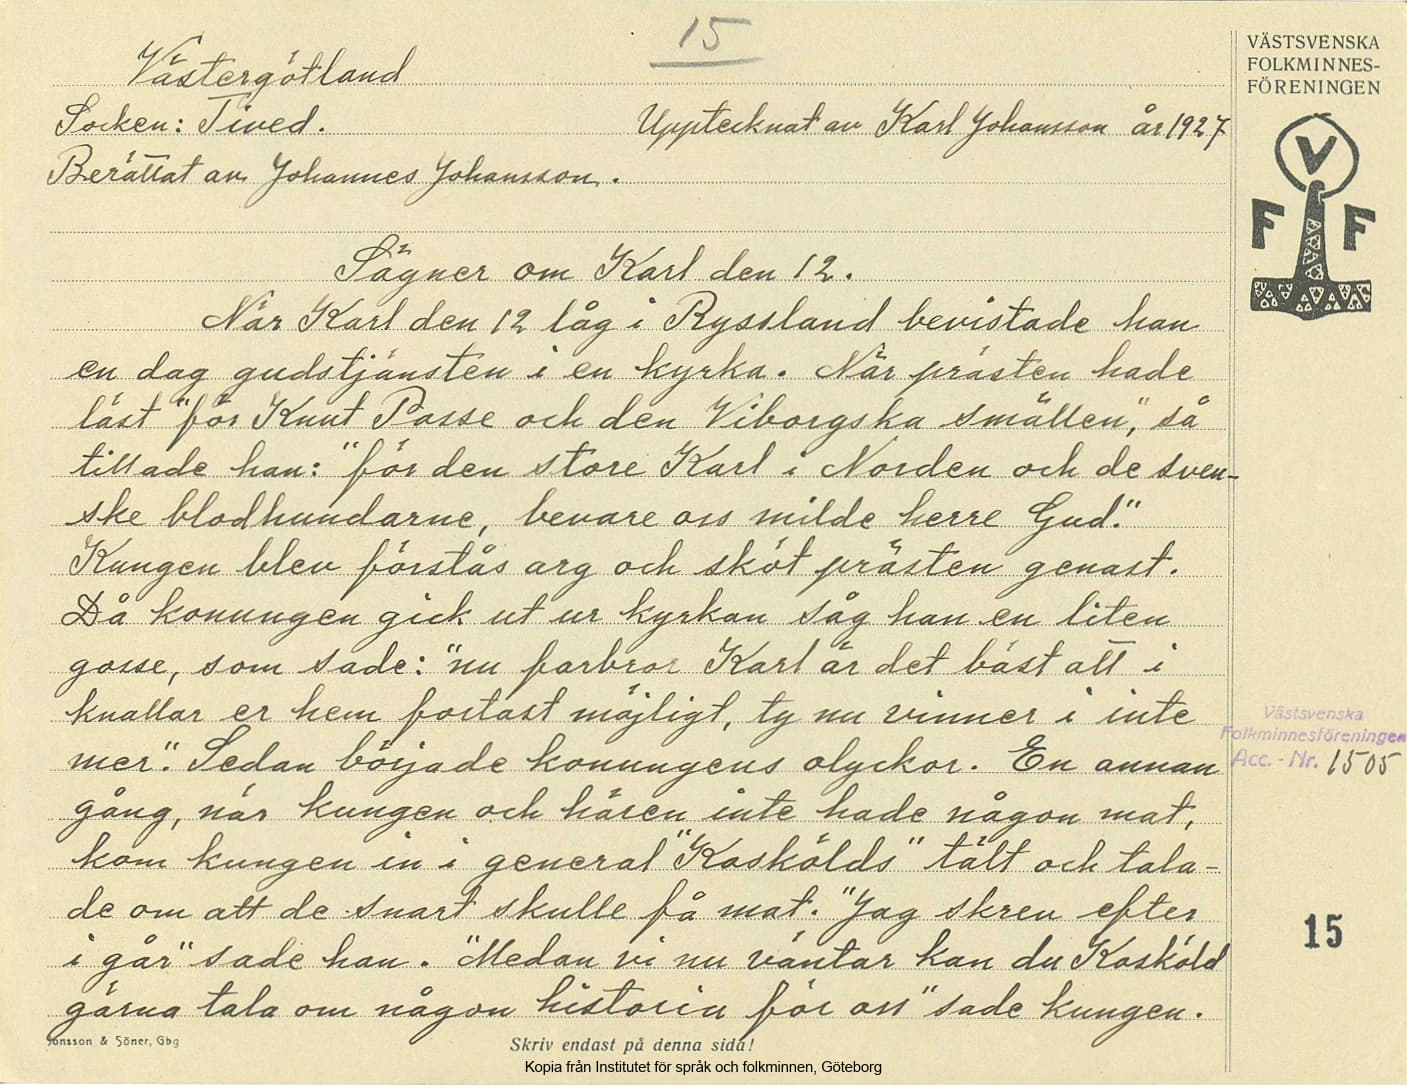 15
VÄSTSVENSKA
FOLKMINNES-
FÖRENINGEN
V
F F
Västergötland
Socken: Tived.
Upptecknat av Karl Johansson år 1927
Berättat av Johannes Johansson.
Sägner om Karl den 12.
När Karl den 12 låg i Ryssland bevistade han
en dag gudstjänsten i en kyrka. När prästen hade
läst "för Knut Posse och den Viborgska smällen", så
tillade han: "för den store Karl i Norden och de sven-
ske blodhundarne, bevare oss milde herre Gud."
Kungen blev förstås arg och sköt prästen genast.
Då konungen gick ut ur kyrkan såg han en liten
gosse, som sade: "nu farbror Karl är det bäst att i
knallar er hem fortast möjligt, ty nu vinner i inte
mer". Sedan började konungens olyckor. En annan
gång, när kungen och hären inte hade någon mat,
kom kungen in i general "Koskölds" tält och tala-
de om att de snart skulle få mat. "Jag skrev efter
i går" sade han. "Medan vi nu väntar kan du Kosköld
gärna tala om någon historia för oss" sade kungen.
Västsvenska
Folkminnesföreningen
Acc.-Nr. 1505
15
Jonsson & Söner, Gbg
Skriv endast på denna sida!
Kopia från Institutet för språk och folkminnen, Göteborg